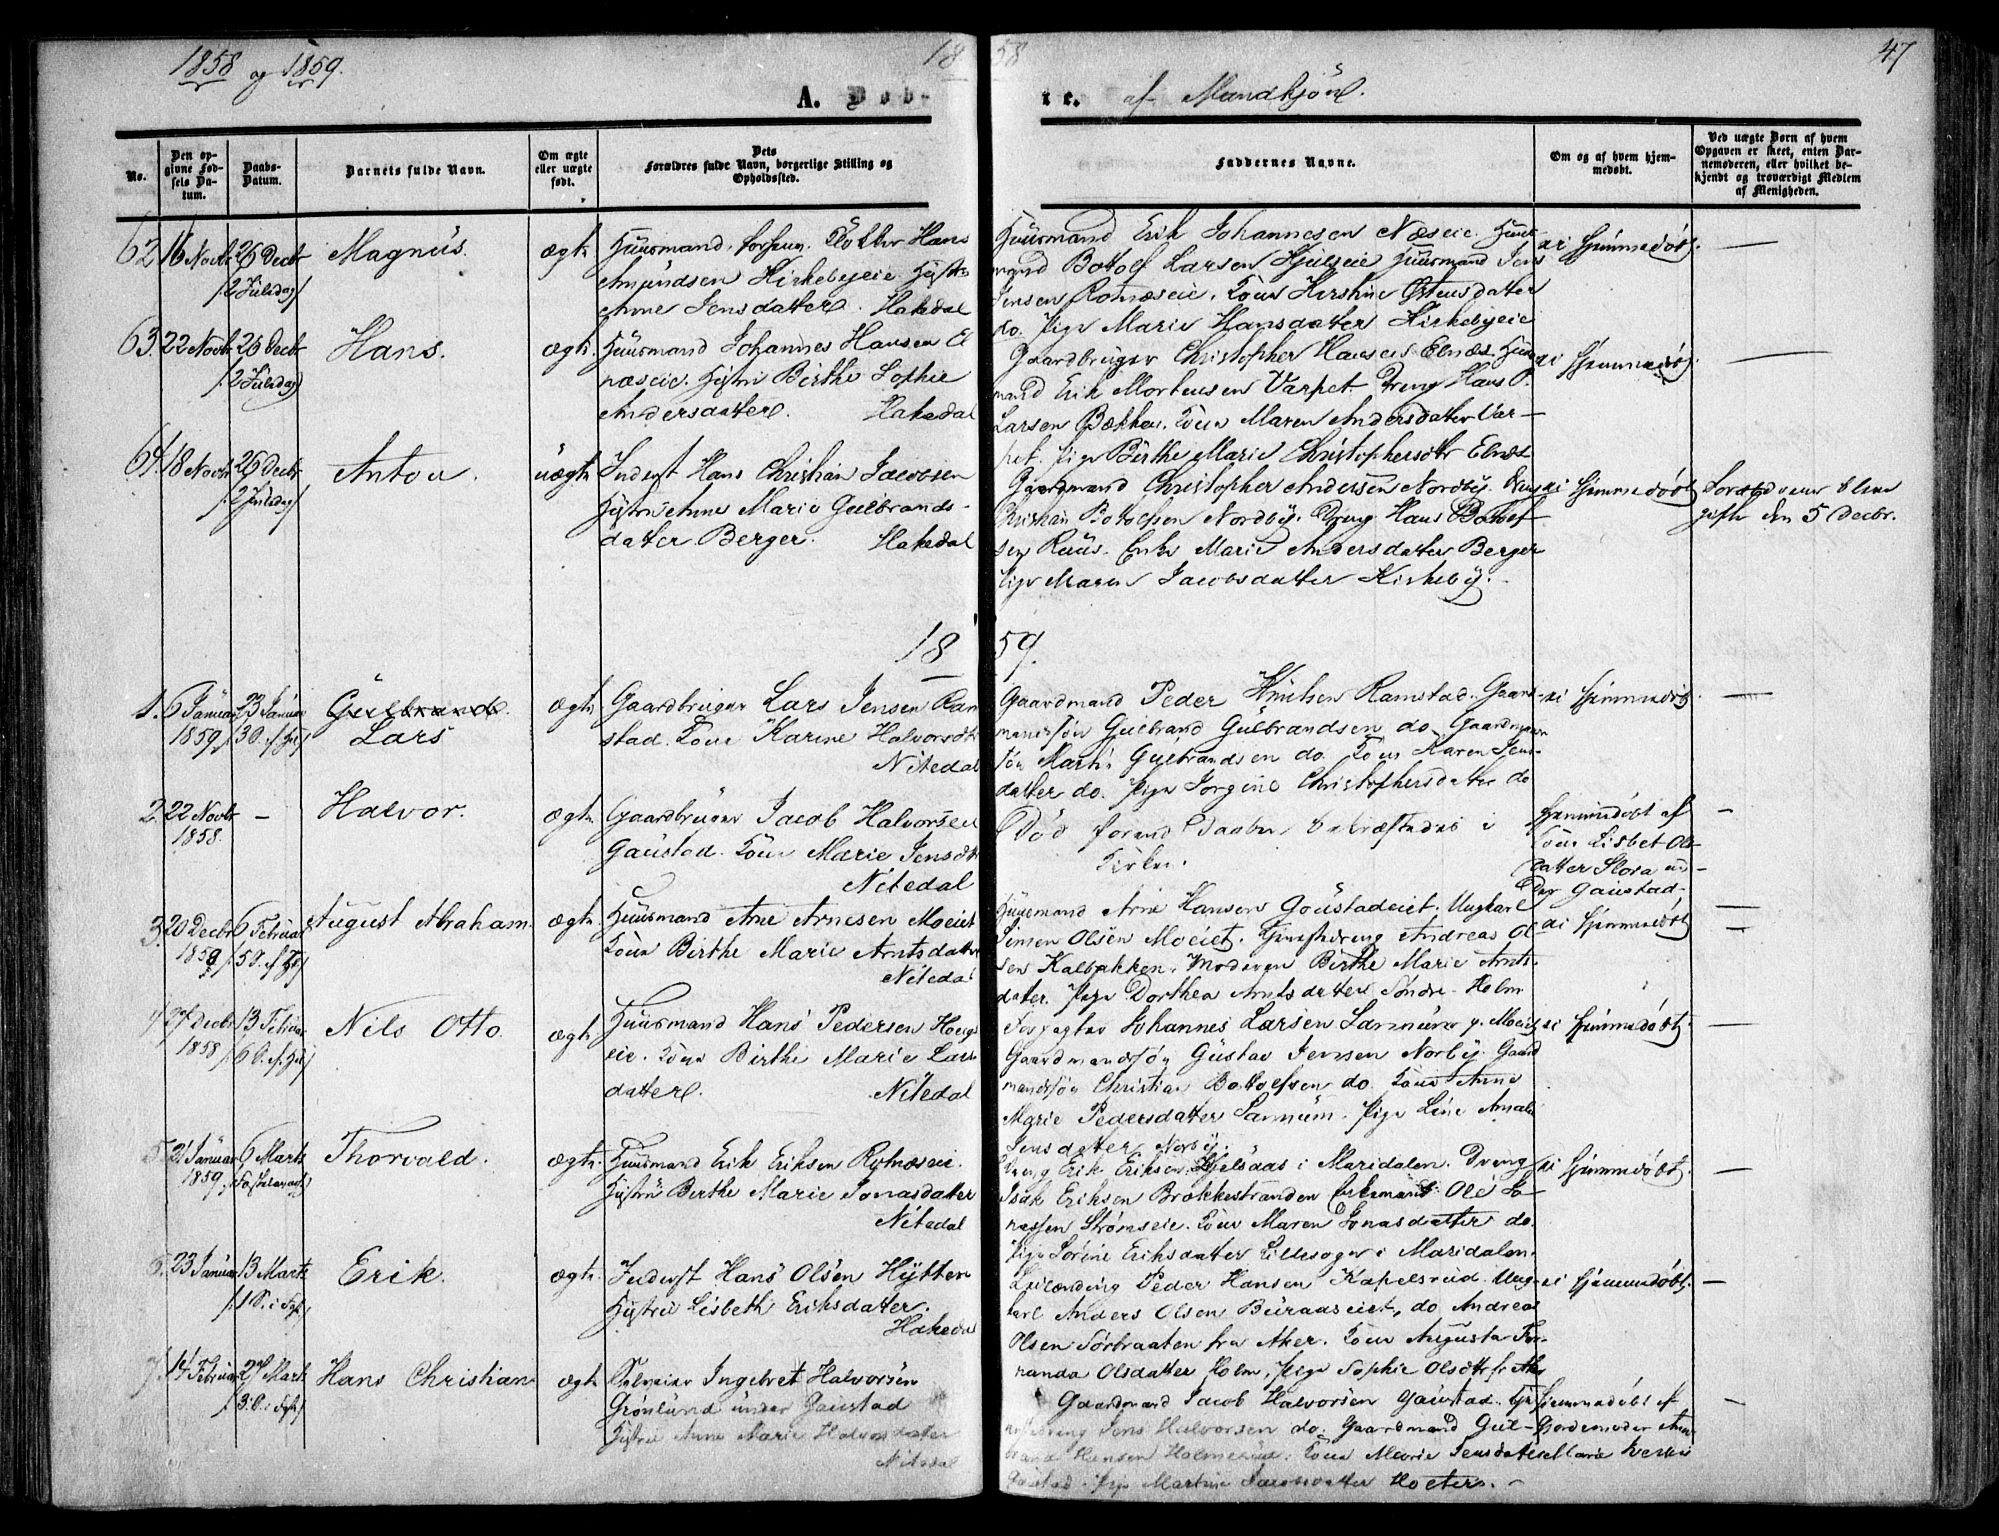 1858 og 1859.
18
58
47
A. Døb-
te. af Mandkjön.
No.
Den op-
givne Fød-
sels Da-
tum.
Daabs-
Datum.
Barnets fulde Navn.
Om ægte
eller uægte
født.
Dets
Forældres fulde Navn, borgerlige Stilling og
Opholdssted.
Faddernes Navne.
Om og af hvem hjem-
medøbt.
Ved uægte Børn af hvem
Opgaven er skeet, enten Bar-
nemoderen, eller hvilket be-
kjendt og troværdigt Medlem
af Menigheden.
62 16 Novbr 26 Decbr Magnus. ægte
/2 Juledag/
Huusmand, Hans
Amundsen Kirkebyeie Hustru
Anne Jensdatter. Hakedal
Huusmand Erik Johannesen Næseie. Huus-
mand Botolf Larsen Huusmand Jens
Jensen Rotnæseie. Kone Kirstine Ostensdatter
do. Pige Marie Hansdatter Kirkebyeie
ei hjemmedøbt. —
63. 22 Novbr 26 Decbr Hans. ægte.
/2 Juledag/
Huusmand Johannes Hansen El-
næseie. Hustru Birthe Sophie
Andersdatter. Hakedal
Gaardbruger Christopher Hansen Elnæs. Huus-
mand Erik Mortensen Varpet. Dreng Hans
Larsen Bækken. Kone Maren Andersdatter Var-
pet. Pige Birthe Marie Christophersdtr Elnæs
ei hjemmedøbt. —
64. 18 Novbr 26 Decbr Anton. uægte
/2 Juledag/
Inderst Hans Christian Jacobsen
Hustru Anne Marie Gulbrands-
datter Berger. Hakedal
Gaardmand Christopher Andersen Nordby.
Christian Botolfsen Nordby. Dreng Hans Botolf-
sen Ruus. Enke Marie Andersdatter Berger
Pige Maren Jacobsdatter Kirkeby.
ei hjemmedøbt
Forældrene bleve
gifte den 5 Decbr.
18
59.
1. 6 Januar 23 Januar Gulbrand. ægte
1859 /3 S. ef. / Lars
Gaardbruger Lars Jensen Ram-
stad. Kone Karine Halvorsdtr
Nitedal
Gaardmand Peder Knutsen Ramstad. Gaard-
mandsøn Gulbrand Gulbrandsen do. Gaardmands-
søn Martin Gulbrandsen do. Kone Karen Jens-
datter do. Pige Jorgine Christophersdatter do
ei hjemmedøbt —
2. 22 Novbr — Halvor. ægte
1858.
Gaardbruger Jacob Halvorsen
Gaustad. Kone Marie Jensdtr
Nitedal
Død forend Daaben bekræftedes i
Kirken.
hjemmedøbt af
Kone Lisbet Ols-
datter Slora un-
der Gaustad.
—
3. 20 Decbr 6 Februar August Abraham. ægte
Huusmand Arne Arnesen Moeiet
Kone Birthe Marie Arntsdatter
Nitedal
Huusmand Arne Hansen Goustadeiet. Ungkarl
Simen Olsen Moeiet. Tjenestdreng Andreas Ol-
sen Kalbakken. Moderen Birthe Marie Arnts-
datter. Pige Dorthea Arntsdatter Søndre Holm
ei hjemmedøbt —
4. 27 Decbr 13 Februar Nils Otto. ægte
1858
Huusmand Hans Pedersen Haug-
eie. Kone Birthe Marie Lars-
datter. Nitedal
Forpagter Johannes Larsen Sannum p. Moeiet
Gaardmandsøn Gustav Jensen Norby. Gaard-
mandsøn Christian Botolfsen do. Kone Anne
Marie Pedersdatter Sannum. Pige Line Amalie
Jensdatter Norby.
ei hjemmedøbt. —
5. 2 Januar 6 Marts Thorvald. ægte.
1859 /Fastelavns/
Huusmand Erik Eriksen Rotnæseie.
Hustru Birthe Marie Jonasdatter
Nitedal
Dreng Erik Eriksen Kjelsaas i Maridalen. Dreng
Isak Eriksen Brækkestranden Enkemand Ole Jo-
nassen Strømseie. Kone Maren Jonasdatter do.
Pige Sorine Eriksdatter Lilleseger i Maridalen.
ei hjemmedøbt. —
6. 23 Januar 13 Marts Erik. ægte.
/1 S. i Fast/
Inderst Hans Olsen Hytten
Hustru Lisbeth Eriksdatter.
Hakedal
Leilænding Peder Hansen Kapelsrud. Ung-
karl Anders Olsen Buraaseiet, do Andreas
Olsen Sørbraaten fra Aker. Kone Augusta Fer-
nanda Olsdatter Holm, Pige Sophie Olsdtr fr Aker
ei hjemmedøbt. —
7. 14 Februar 27 Marts Hans Christian ægte
/3 S. i Fast/
Selveier Ingebret Halvorsen
Grønlund under Gaustad
Hustru Anne Marie Halvorsdatter
Nitedal
Gaardmand Jacob Halvorsen Gaustad. Tje-
nestedreng Jens Halvorsen do. Gaardmand Gul-
brand Hansen Holmerud. Kone Marie Jensdatter
Gaustad. Pige Martine Jacobsdatter Holter. —
hjemmedøbt af
Jordemoder Anne
Maria
—